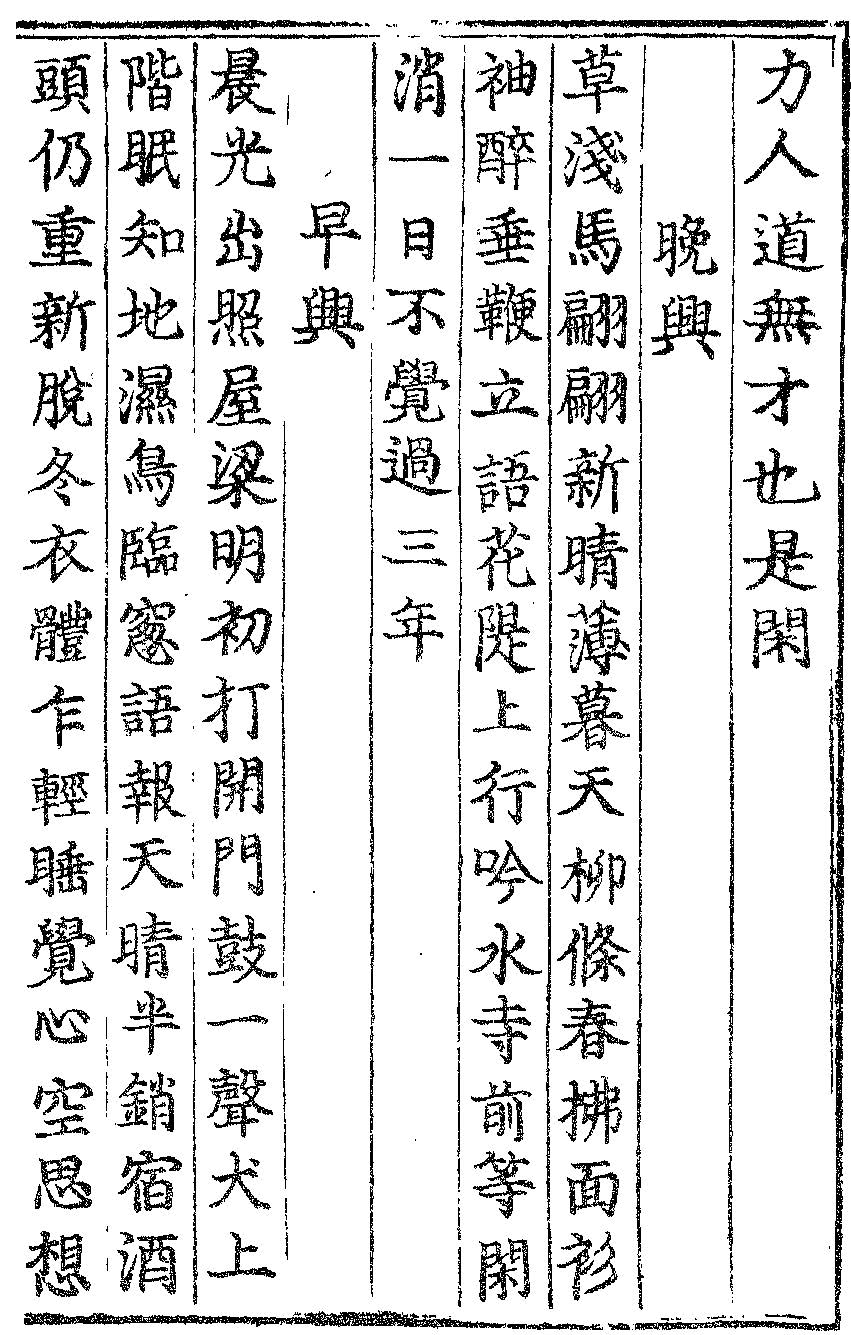 力人道無才也是閑
晚興
草淺馬翩翩新晴薄暮天柳條春拂面衫
袖醉垂鞭立語花隄上行吟水寺前等閑
消一日不覺過三年
早興
晨光出照屋梁明初打開門鼓一聲犬上
階眠知地濕鳥臨窻語報天晴半銷宿酒
頭仍重新脫冬衣體乍輕睡覺心空思想